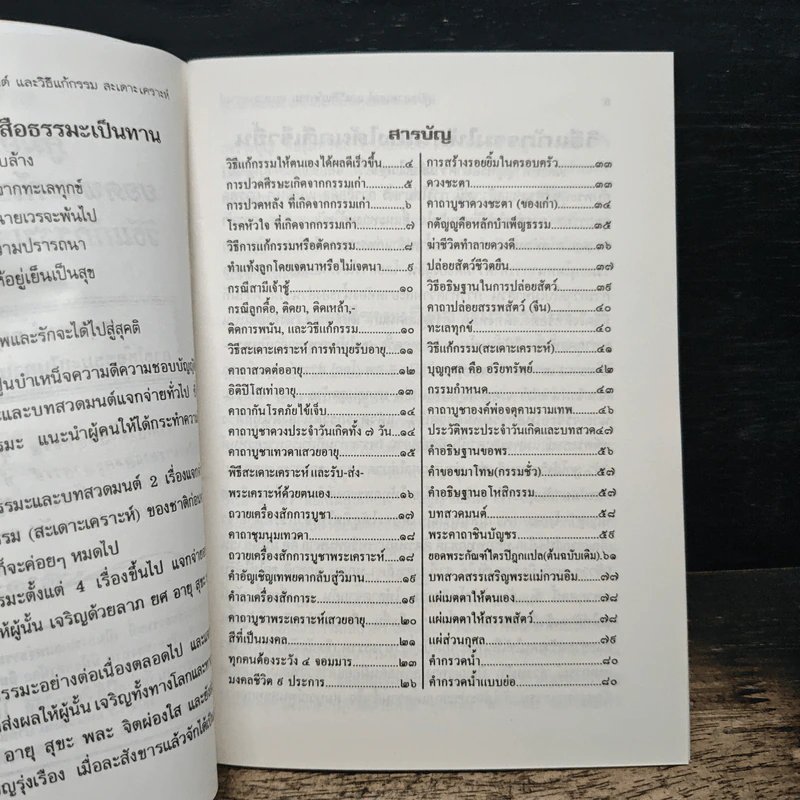 ต์ และวิธีแก้กรรม สะเดาะเคราะห์
สือธรรมะเป็นทาน
บล้าง
จากทะเลทุกข์
นายเวรจะพ้นไป
วามปรารถนา
ห้อยู่เย็นเป็นสุข
พและรักจะได้ไปสู่สุคติ
ปูนบำเหน็จความดีความชอบบัญญั
ะและบทสวดมนต์แจกจ่ายทั่วไป
รรมะ แนะนำผู้คนให้ได้กระทำความ
รรมะและบทสวดมนต์ 2 เรื่องแจกจ
รรม (สะเดาะเคราะห์) ของชาติก่อน
ก็จะค่อยๆ หมดไป
รรมะตั้งแต่ 4 เรื่องขึ้นไป แจกจ่าย
ให้ผู้นั้น เจริญด้วยลาภ ยศ อายุ สุข
รรมะอย่างต่อเนื่องตลอดไป และแ
ส่งผลให้ผู้นั้น เจริญทั้งทางโลกและทา
อายุ สุขะ พละ จิตผ่องใส และยัง
ญรุ่งเรือง เมื่อละสังขารแล้วจักได้เป็
สารบัญ
วิธีแก้กรรมให้ตนเองได้ผลดีเร็วขึ้น.....๔
การปวดศีรษะเกิดจากกรรมเก่า.....๕
การปวดหลัง ที่เกิดจากกรรมเก่า.....๖
โรคหัวใจ ที่เกิดจากกรรมเก่า.....๗
วิธีการแก้กรรมหรือตัดกรรม.....๘
ทำแท้งลูกโดยเจตนาหรือไม่เจตนา.....๙
กรณีสามีเจ้าชู้.....๑๐
กรณีลูกดื้อ, ติดยา, ติดเหล้า,-
ติดการพนัน, และวิธีแก้กรรม.....๑๐
วิธีสะเดาะเคราะห์ การทำบุญรับอายุ.....๑๑
คาถาสวดต่ออายุ.....๑๒
อิติปิโสเท่าอายุ.....๑๓
คาถากันโรคภัยไข้เจ็บ.....๑๔
คาถาบูชาดวงประจำวันเกิดทั้ง ๗ วัน.....๑๔
คาถาบูชาเทวดาเสวยอายุ.....๑๕
พิธีสะเดาะเคราะห์และรับ-ส่ง-
พระเคราะห์ด้วยตนเอง.....๑๖
ถวายเครื่องสักการบูชา.....๑๗
คาถาชุมนุมเทวดา.....๑๘
ถวายเครื่องสักการบูชาพระเคราะห์.....๑๘
คำอัญเชิญเทพยดากลับสู่วิมาน.....๑๙
คำลาเครื่องสักการะ.....๑๙
คาถาบูชาพระเคราะห์เสวยอายุ.....๒๐
สีที่เป็นมงคล.....๒๑
ทุกคนต้องระวัง ๔ จอมมาร.....๒๓
มงคลชีวิต ๙ ประการ.....๒๖
การสร้างรอยยิ้มในครอบครัว.....๓๓
ดวงชะตา.....๓๓
คาถาบูชาดวงชะตา (ของเก่า).....๓๔
กตัญญูคือหลักบำเพ็ญธรรม.....๓๕
ฆ่าชีวิตทำลายดวงดี.....๓๖
ปล่อยสัตว์ชีวิตยืน.....๓๗
วิธีอธิษฐานในการปล่อยสัตว์.....๓๙
คาถาปล่อยสรรพสัตว์ (จีน).....๔๐
ทะเลทุกข์.....๔๐
วิธีแก้กรรม(สะเดาะเคราะห์).....๔๑
บุญกุศล คือ อริยทรัพย์.....๔๒
กรรมกำหนด.....๔๓
คาถาบูชาองค์พ่อจตุคามรามเทพ.....๔๖
ประวัติพระประจำวันเกิดและบทสวด๔๗
คำอธิษฐานขอพร.....๕๖
คำขอขมาโทษ(กรรมชั่ว).....๕๗
คำอธิษฐานอโหสิกรรม.....๕๗
บทสวดมนต์.....๕๘
พระคาถาชินบัญชร.....๕๙
ยอดพระกัณฑ์ไตรปิฎกแปล(ต้นฉบับเดิม).๖๑
บทสวดสรรเสริญพระแม่กวนอิม.....๗๗
แผ่เมตตาให้ตนเอง.....๗๘
แผ่เมตตาให้สรรพสัตว์.....๗๘
แผ่ส่วนกุศล.....๗๙
คำกรวดน้ำ.....๘๐
คำกรวดน้ำแบบย่อ.....๘๐